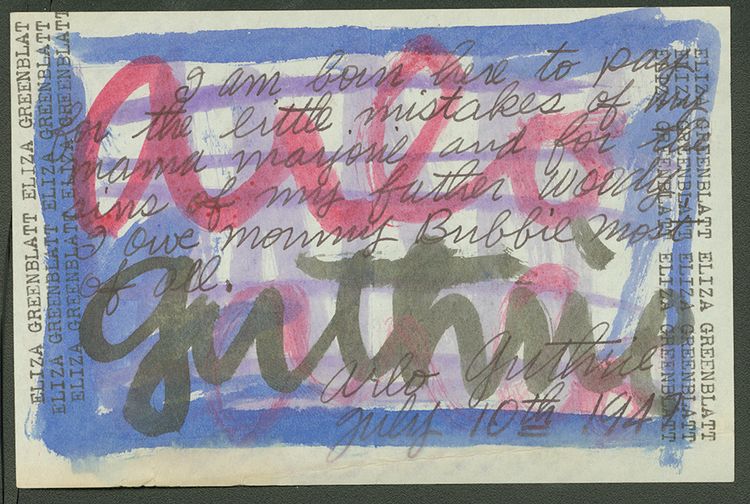 ELIZA GREENBLATT ELIZA GREENBLAT
ELIZA GREENBLATT ELIZA GREENBLATT
ELIZA GREENBLATT ELIZA GREENBLATT
arlo
guthrie
I am born here to pay
the little mistakes of my
mama marjorie and for the
sins of my father woody.
I owe mommy Bubbie most
of all.
arlo guthrie
july 10th 1947
ELIZA GREENBLATT ELIZA GREENBLATT
ELIZA GREENBLATT ELIZA GREENBLATT
ELIZA GREENBLATT ELIZA GREENBLATT